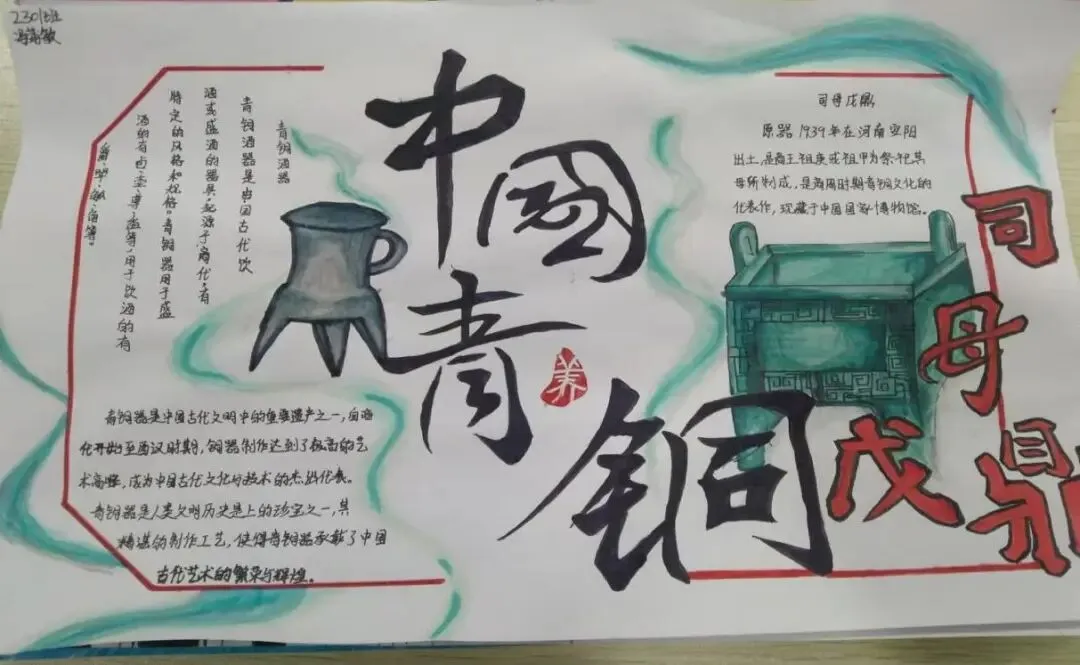 2301班
中國青銅
养
青铜酒器
青铜酒器是中国古代饮
酒或盛酒的器具。起源于商代,有
特定的风格和规格。青铜器用于盛
酒的有卣·壶·尊·盉等,用于饮酒的有
青铜器是中国古代文明中的重要遗产之一,自
化开始至西汉时期,铜器制作达到了极高的艺
术高峰,成为中国古代文化与技术的杰出代表。
青铜器是人类文明历史是上的珍宝之一,其
精湛的制作工艺,使得青铜器承载了中国
古代艺术的繁荣与辉煌。
司母戊鼎
原器1939年在河南安阳
出土,是商王祖庚或祖甲为祭祀其
母所制成,是商周时期青铜文化的
代表作,现藏于中国国家博物馆。
司母戊鼎